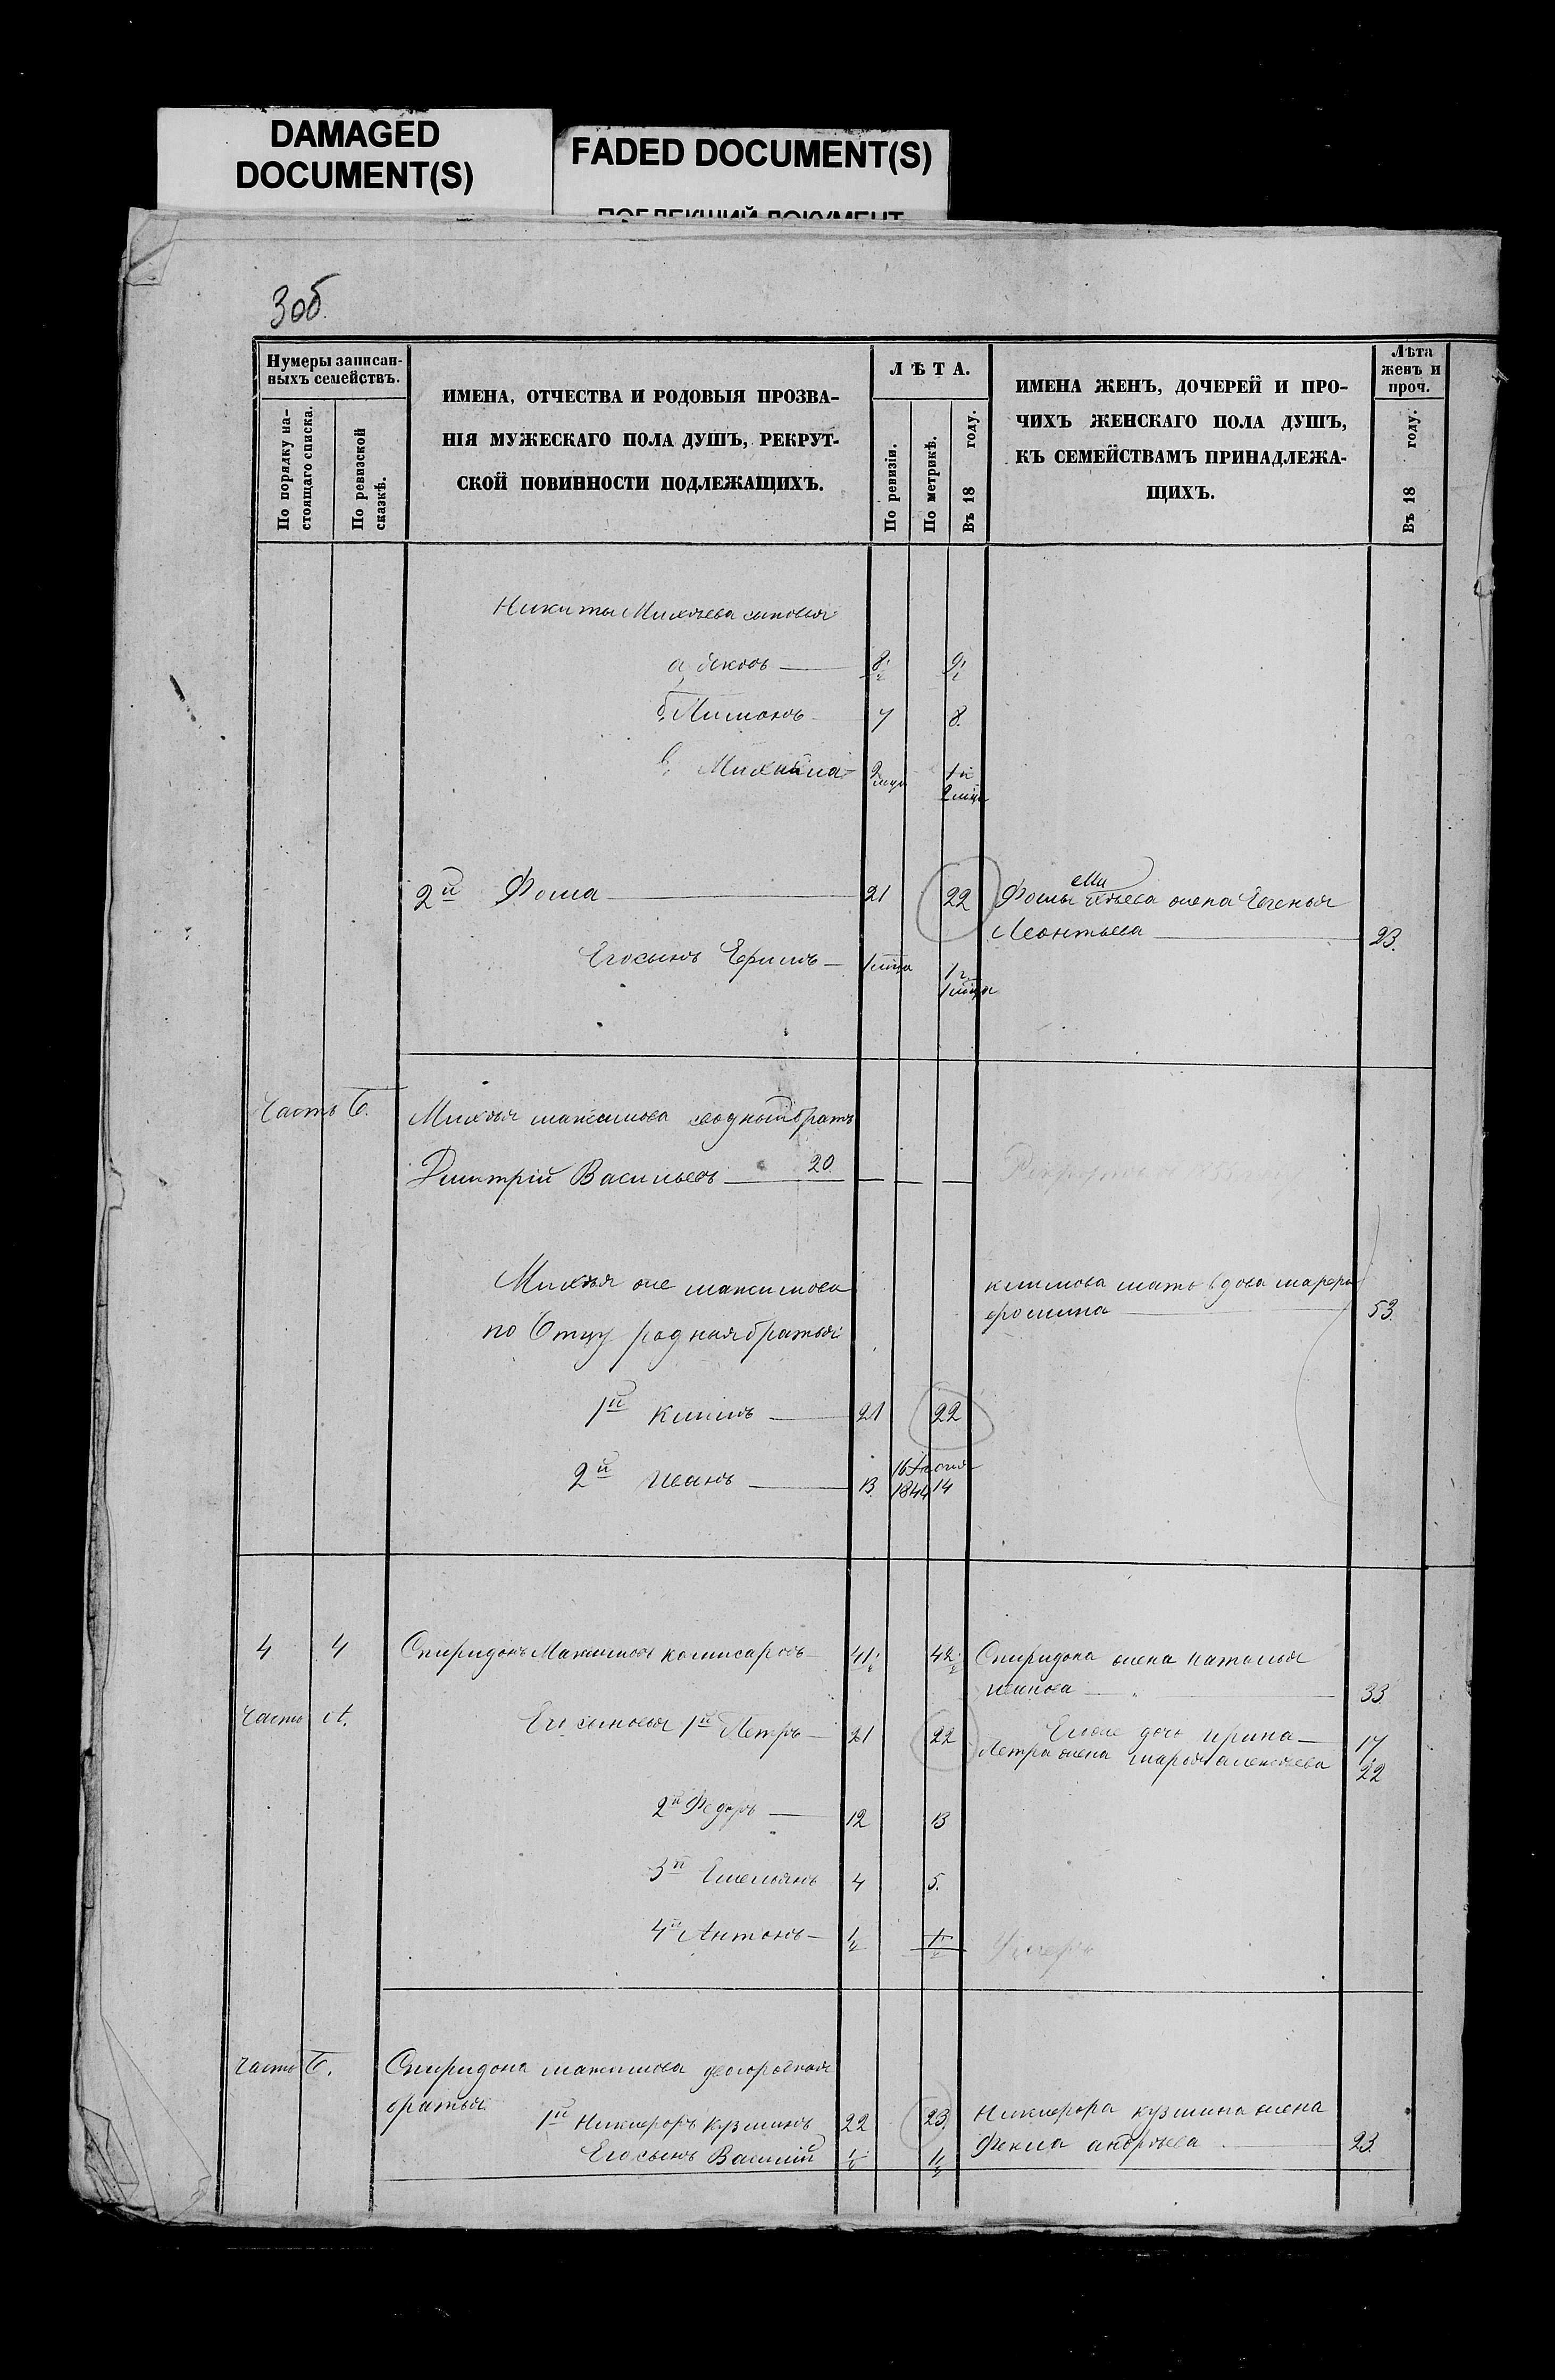 DAMAGED
DOCUMENT(S)
FADED DOCUMENT(S)
ПОБЛЕКШИЙ ДОКУМЕНТ
3об.
Нумеры записан-
ныхъ семействъ.
По порядку на-
стоящаго списка.
По ревизской
сказкѣ.
ИМЕНА, ОТЧЕСТВА И РОДОВЫЯ ПРОЗВА-
НІЯ МУЖЕСКАГО ПОЛА ДУШЪ, РЕКРУТ-
СКОЙ ПОВИННОСТИ ПОДЛЕЖАЩИХЪ.
ЛѢТА.
По ревизіи.
По метрикѣ.
Въ 18 году.
ИМЕНА ЖЕНЪ, ДОЧЕРЕЙ И ПРО-
ЧИХЪ ЖЕНСКАГО ПОЛА ДУШЪ,
КЪ СЕМЕЙСТВАМЪ ПРИНАДЛЕЖА-
ЩИХЪ.
Лѣта
женъ и
проч.
Въ 18 году.
Никиты Михѣева сыновья
а, Яковъ 8½ 9½
б, Пименъ 7 8.
в, Михайла 2 мца 1 и
2 мца
2й Фома 21 22 Фомы Михѣева жена Евгенья
Леонтьева 23.
Его сынъ Ефимъ 1 мца 1 г.
1 мца
Часть Б. Михѣя максимова сводный братъ
Дмитрій Васильевъ 20
Михѣя же максимова
по Отцу родныя братья
климова мать вдова марфа
фомина 53.
1й климъ 21 22
2й иванъ 13. 16 Іюня
1844 14
4 4 Спиридонъ Максимовъ комисаровъ 41½ 42½ Спиридона жена наталья
иванова 33
Часть А. Его сыновья 1й Петръ 21 22 Ево же дочь ирина 17
Петра жена марья алексѣева 22
2й Федоръ 12 13
3й Емельянъ 4 5.
4й Антонъ ½ 1½
Часть Б. Спиридона максимова двоюродныя
братья
1й Никифоръ кузминъ 22 23. Никифора кузмина жена
Фекла андрѣева 23.
Его сынъ Василий ½ 1½